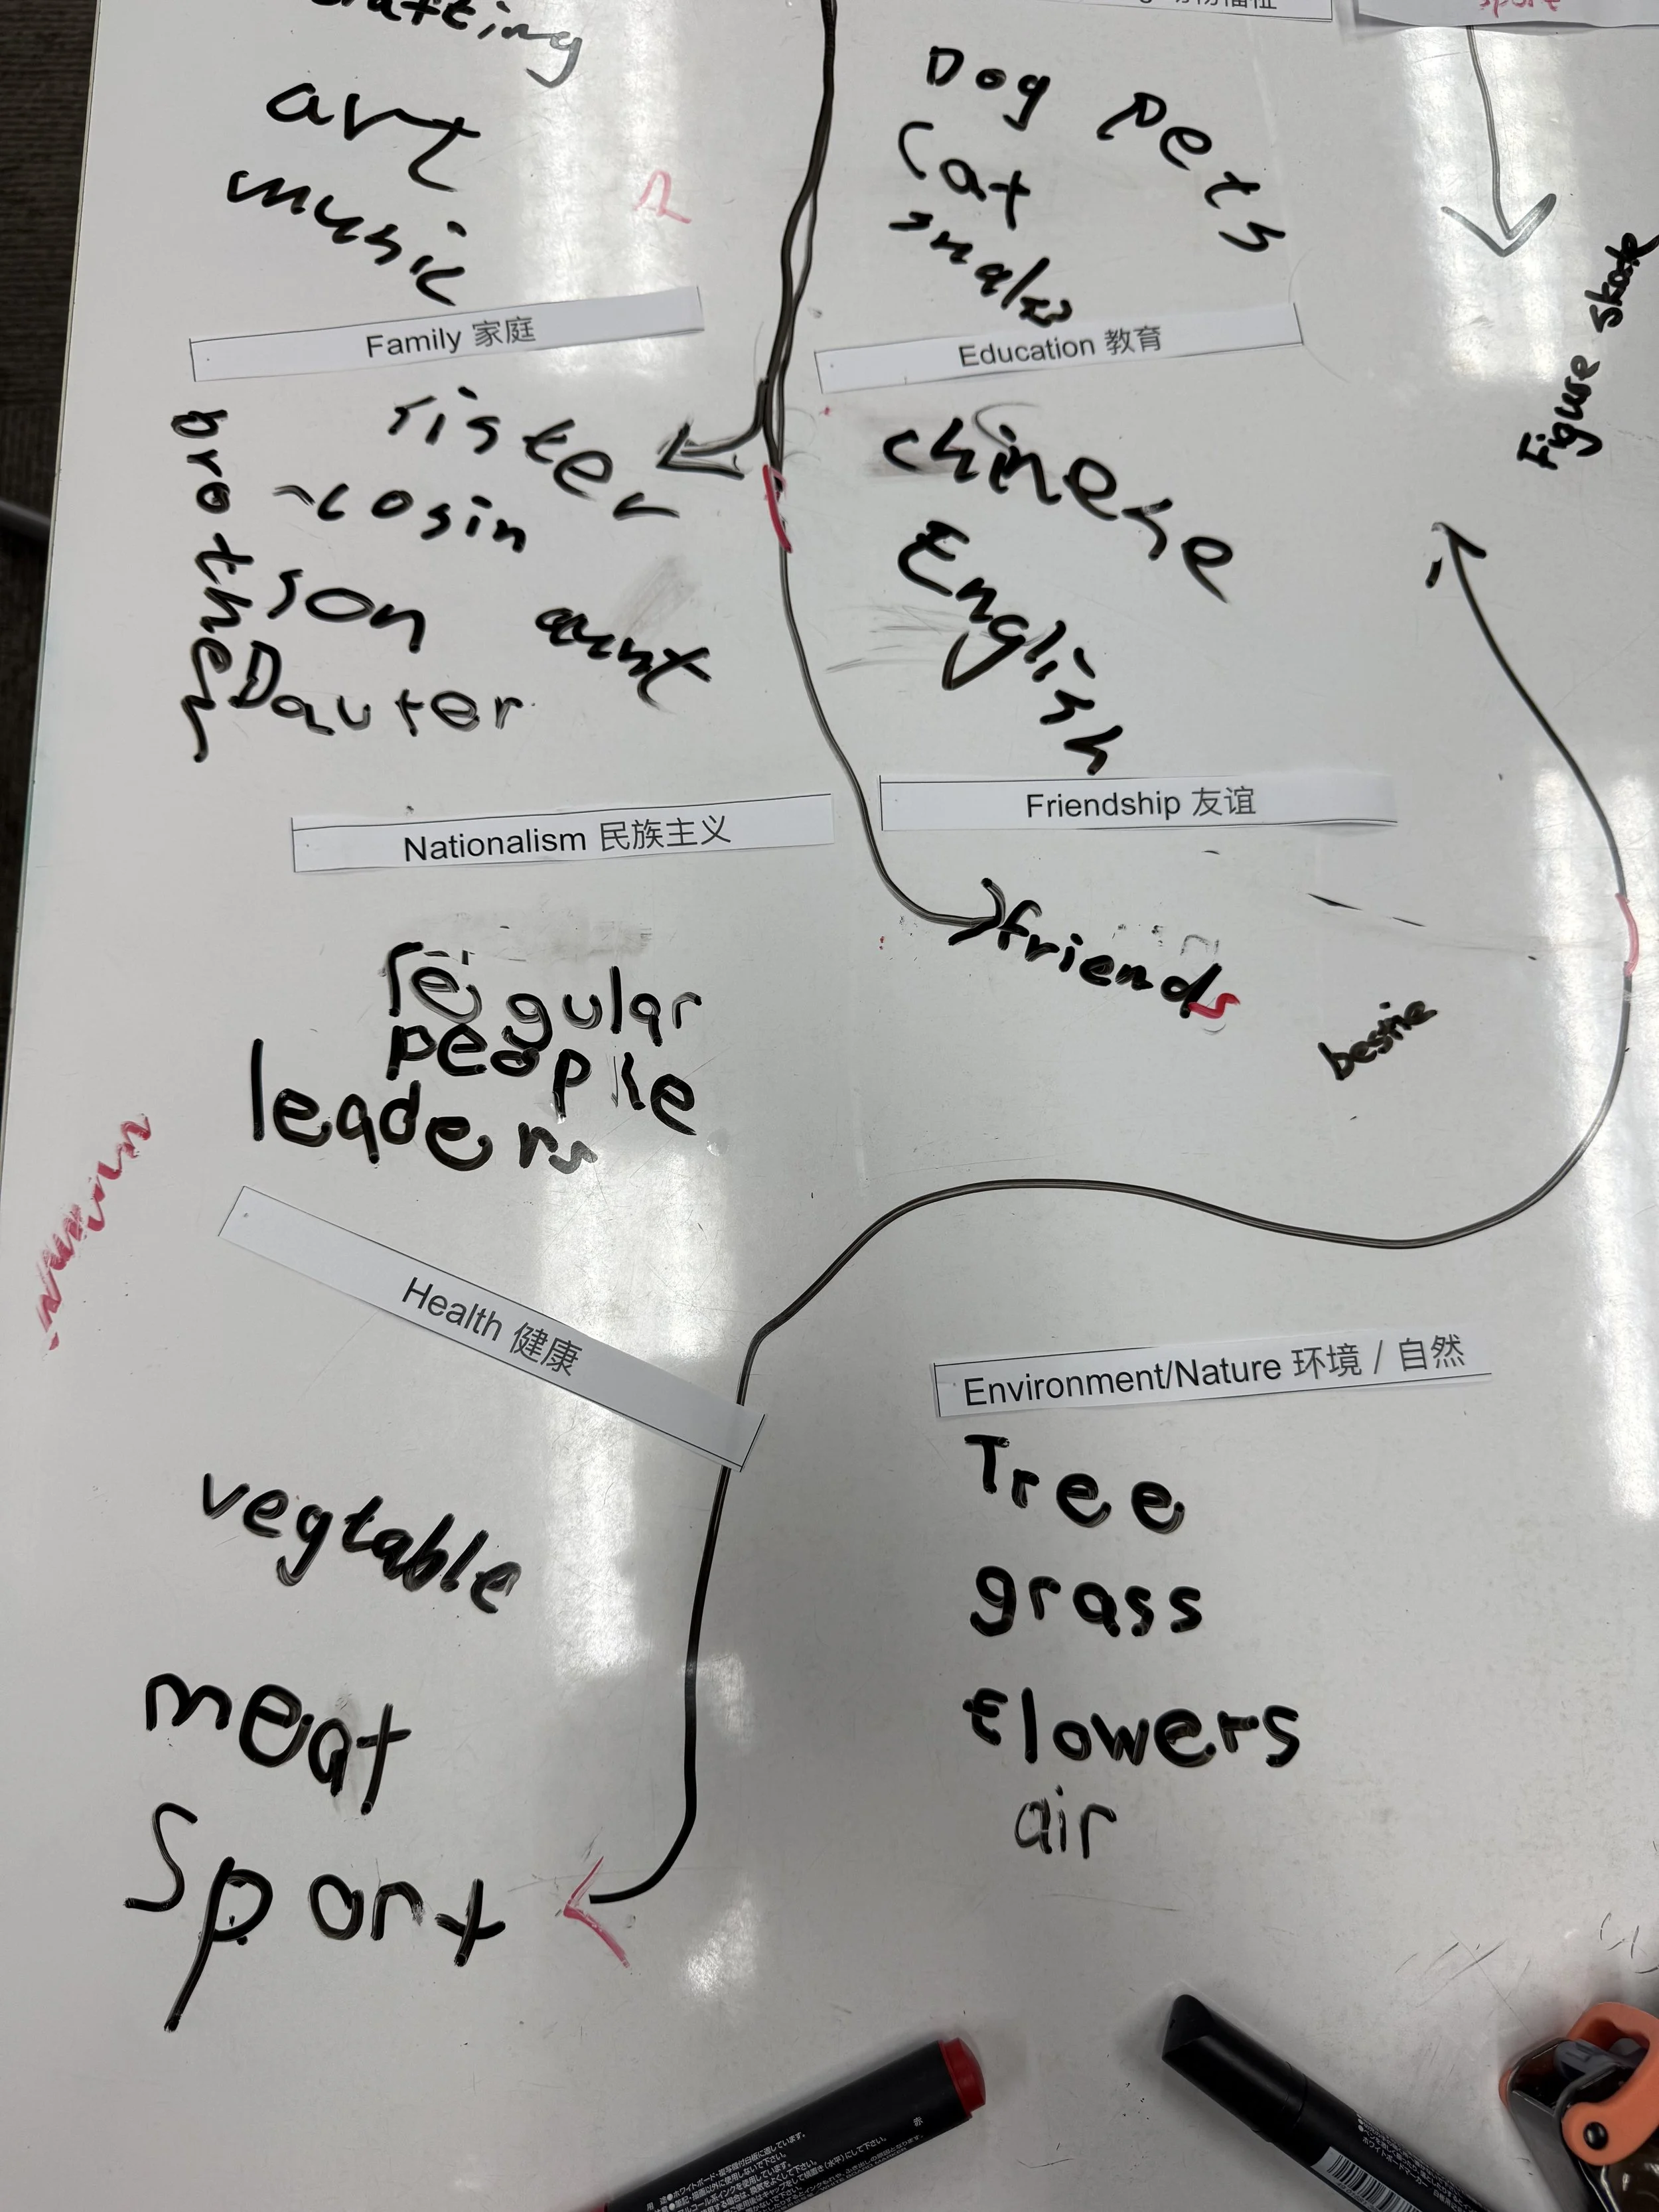 art
music
Dog
Pets
Cat
sport
Figure skate
Family 家庭
sister
brother
cosin
son
aunt
Dauter
Education 教育
chinese
English
Nationalism 民族主义
regular
people
leaders
Friendship 友谊
friends
bestie
Health 健康
vegtable
meat
Sport
Environment/Nature 环境 / 自然
Tree
grass
flowers
air
赤